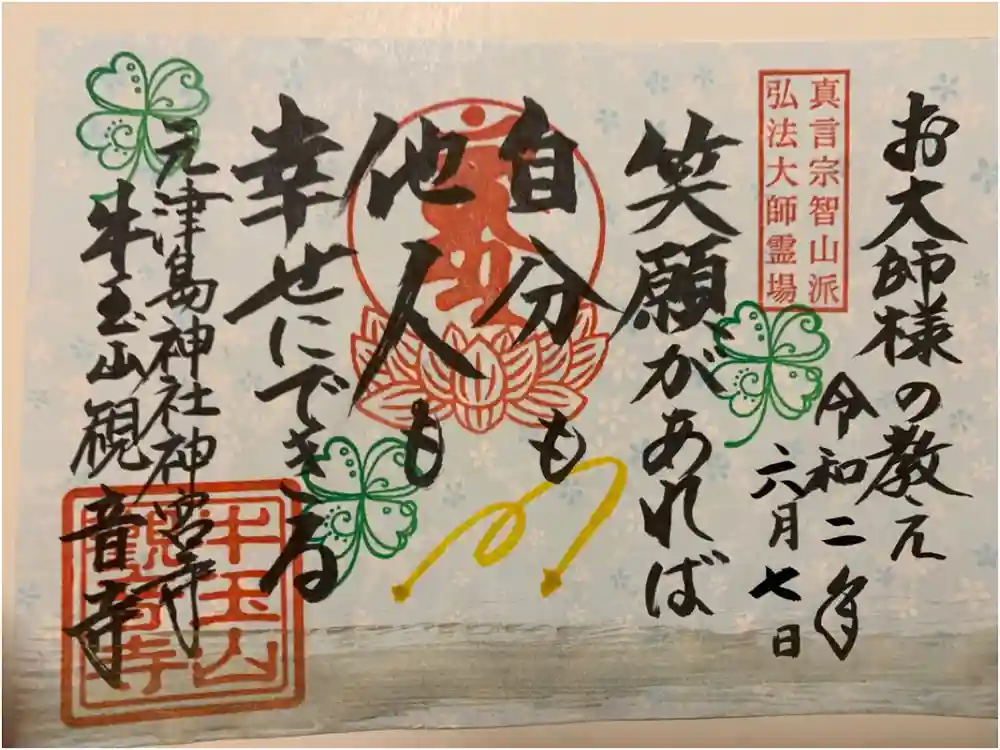 お大師様の教え
真言宗智山派
弘法大師霊場
令和二年
六月七日
笑願があれば
自分も
他人も
幸せにできる
元津島神社神宮寺
牛玉山観音寺
牛玉山
觀音寺